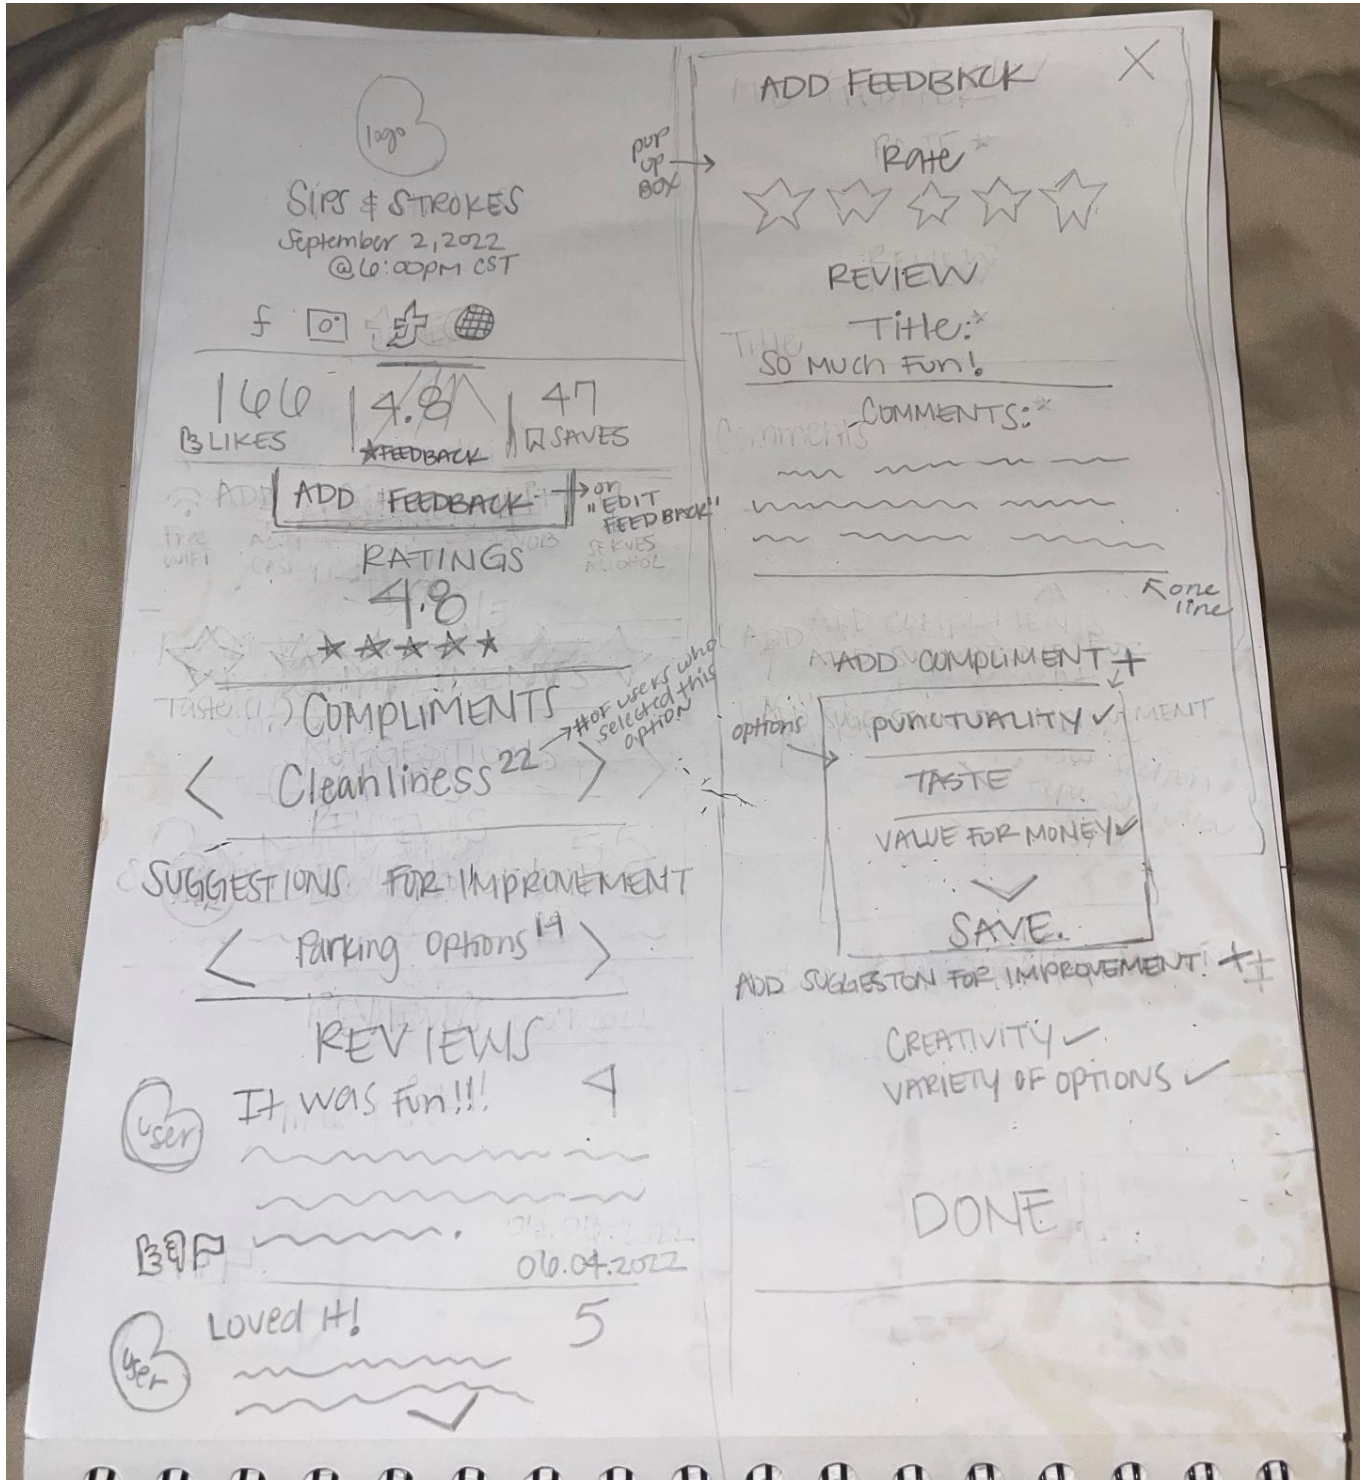 logo
SIPS & STROKES
September 2, 2022
@6:00PM CST
f
166
LIKES
4.8
FEEDBACK
47
SAVES
ADD FEEDBACK
or
"EDIT
FEEDBACK"
Free
WIFI
SERVES
ALCOHOL
RATINGS
4.8
Taste
COMPLIMENTS
< Cleanliness 22 >
# of users who
selected this
option
SUGGESTIONS FOR IMPROVEMENT
< Parking Options 14 >
REVIEWS
user
It was Fun!!! 4
06.04.2022
user
Loved it! 5
pop
up
BOX
ADD FEEDBACK X
Rate*
REVIEW
Title
Title:*
SO MUCH FUN!
Comments
COMMENTS:*
one
line
ADD COMPLIMENT +
options
PUNCTUALITY ✓
TASTE
VALUE FOR MONEY ✓
SAVE.
ADD SUGGESTON FOR IMPROVEMENT! +
CREATIVITY ✓
VARIETY OF OPTIONS ✓
DONE